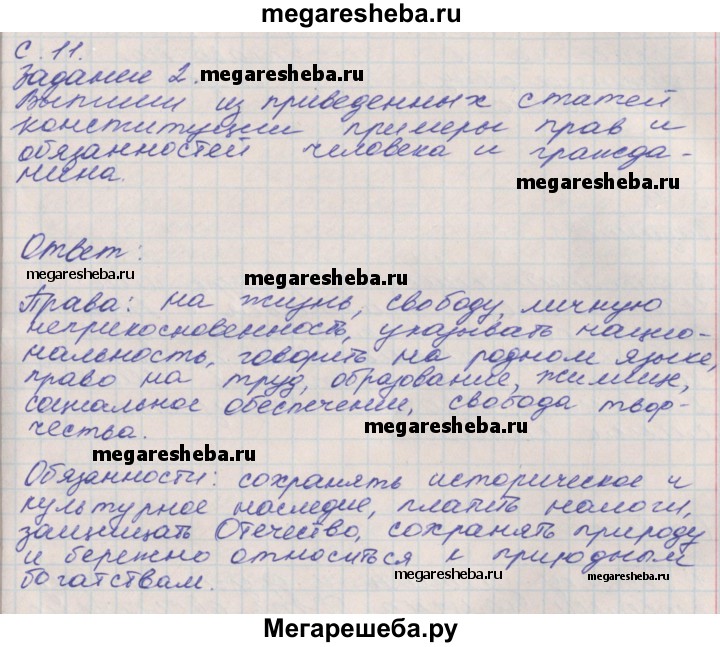 megaresheba.ru
С. 11.
Задание 2. megaresheba.ru
Выпиши из приведенных статей
конституции примеры прав и
обязанностей человека и гражда-
нина. megaresheba.ru
Ответ:
megaresheba.ru megaresheba.ru
Права: на жизнь, свободу, личную
неприкосновенность, указывать нацио-
нальность, говорить на родном языке,
право на труд, образование, жилище,
социальное обеспечение, свобода твор-
чества. megaresheba.ru
megaresheba.ru
Обязанности: сохранять историческое и
культурное наследие, платить налоги,
защищать Отечество, сохранять природу
и бережно относиться к природным
богатствам. megaresheba.ru megaresheba.ru
Мегарешеба.ру